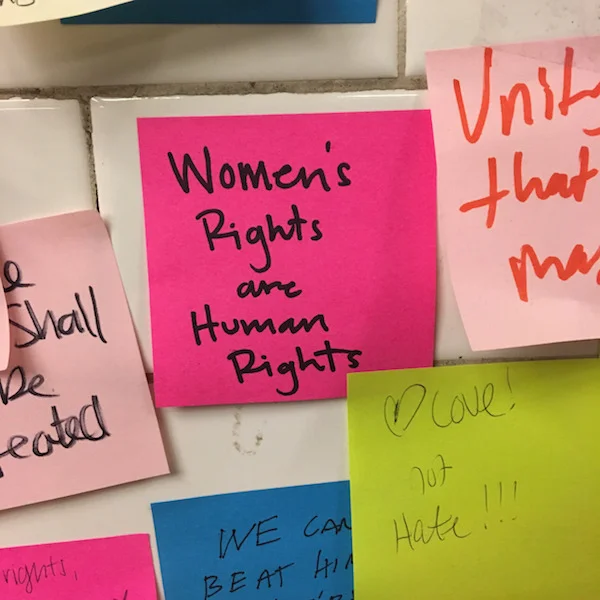 Women's
Rights
are
Human
Rights
that
Shall
be
♡ Love!
not
Hate!!!
WE CAN
BEAT HIM
rights,